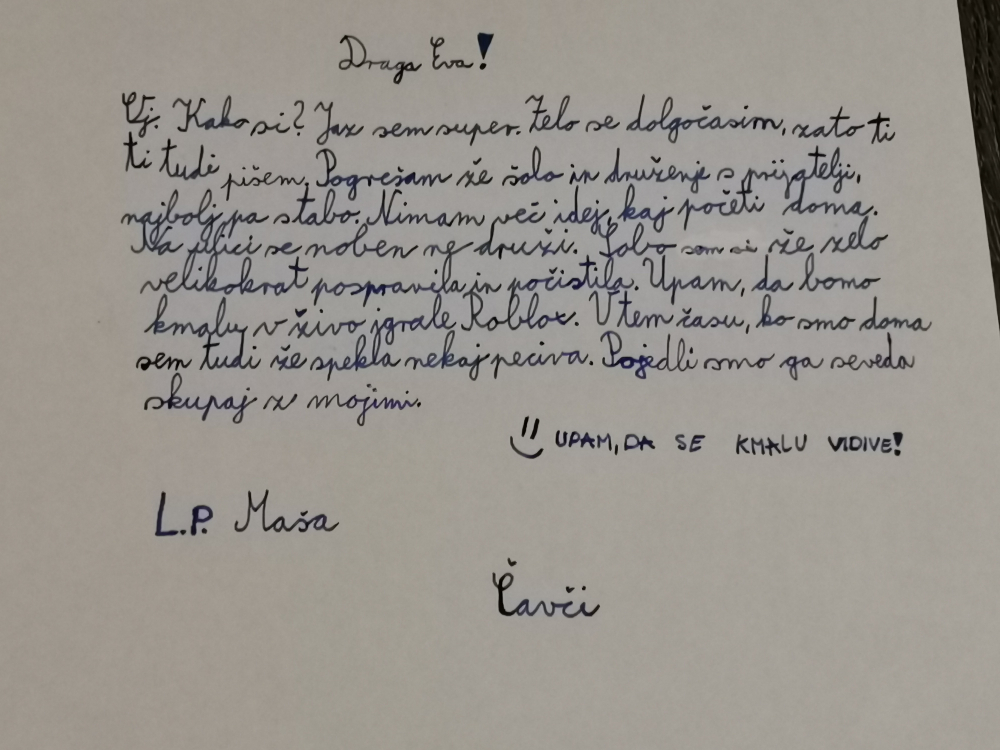 Draga Eva!
Oj. Kako si? Jaz sem super. Zelo se dolgočasim, zato ti
ti tudi pišem. Pogrešam že šolo in druženje s prijatelji,
najbolj pa s tabo. Nimam več idej, kaj početi doma.
Na ulici se noben ne druži. Sobo sem si že zelo
velikokrat pospravila in počistila. Upam, da bomo
kmalu v živo igrale Roblox. V tem času, ko smo doma
sem tudi že spekla nekaj peciva. Pojedli smo ga seveda
skupaj z mojimi.
UPAM, DA SE KMALU VIDIVE!
L.P. Maša
Čavči